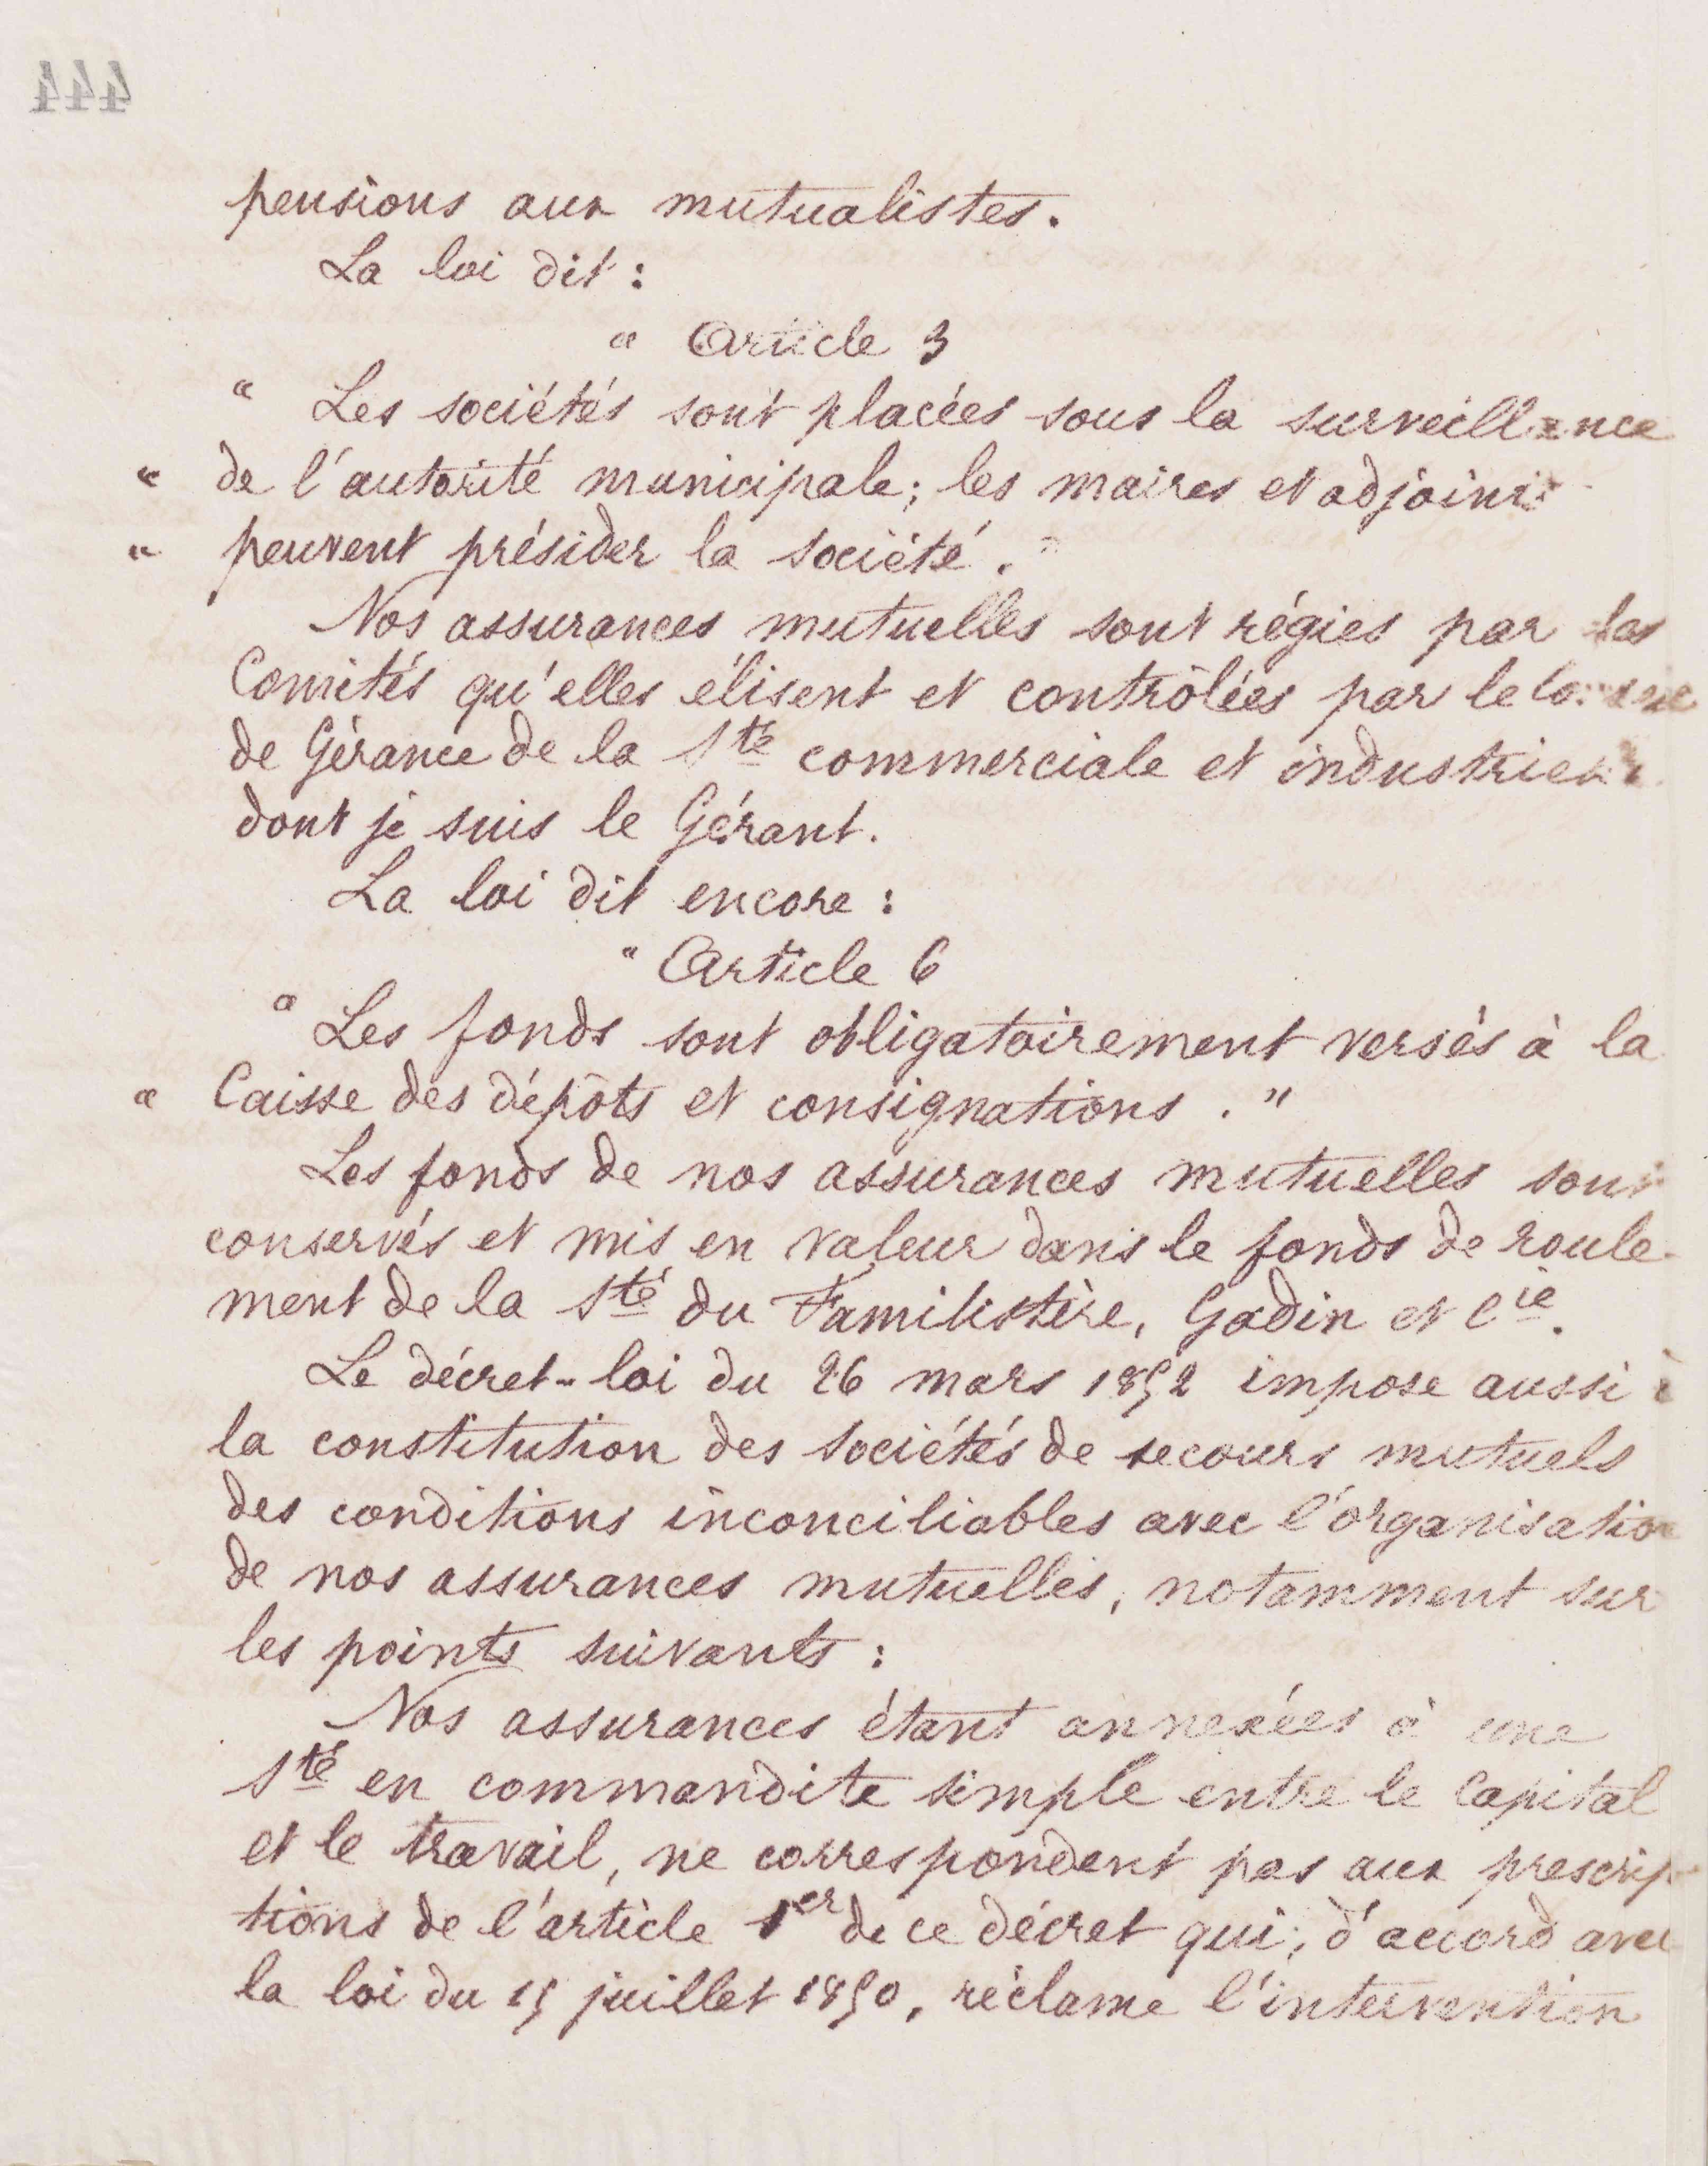 444
pensions aux mutualistes.
La loi dit :
" Article 3
" Les sociétés sont placées sous la surveillance
" de l'autorité municipale ; les maires et adjoints
" peuvent présider la société. "
Nos assurances mutuelles sont régies par les
Comités qu'elles élisent et contrôlées par le
de Gérance de la Sté commerciale et industrielle
dont je suis le Gérant.
La loi dit encore :
" Article 6
" Les fonds sont obligatoirement versés à la
" Caisse des dépôts et consignations. "
Les fonds de nos assurances mutuelles sont
conservés et mis en valeur dans le fonds de roule-
ment de la Sté du Familistère, Godin et Cie.
Le décret-loi du 26 mars 1852 impose aussi à
la constitution des sociétés de secours mutuels
des conditions inconciliables avec l'organisation
de nos assurances mutuelles, notamment sur
les points suivants :
Nos assurances étant annexées à une
Sté en commandite simple entre le Capital
et le travail, ne correspondent pas aux prescrip-
tions de l'article 1er de ce décret qui, d'accord avec
la loi du 15 juillet 1850, réclame l'intervention